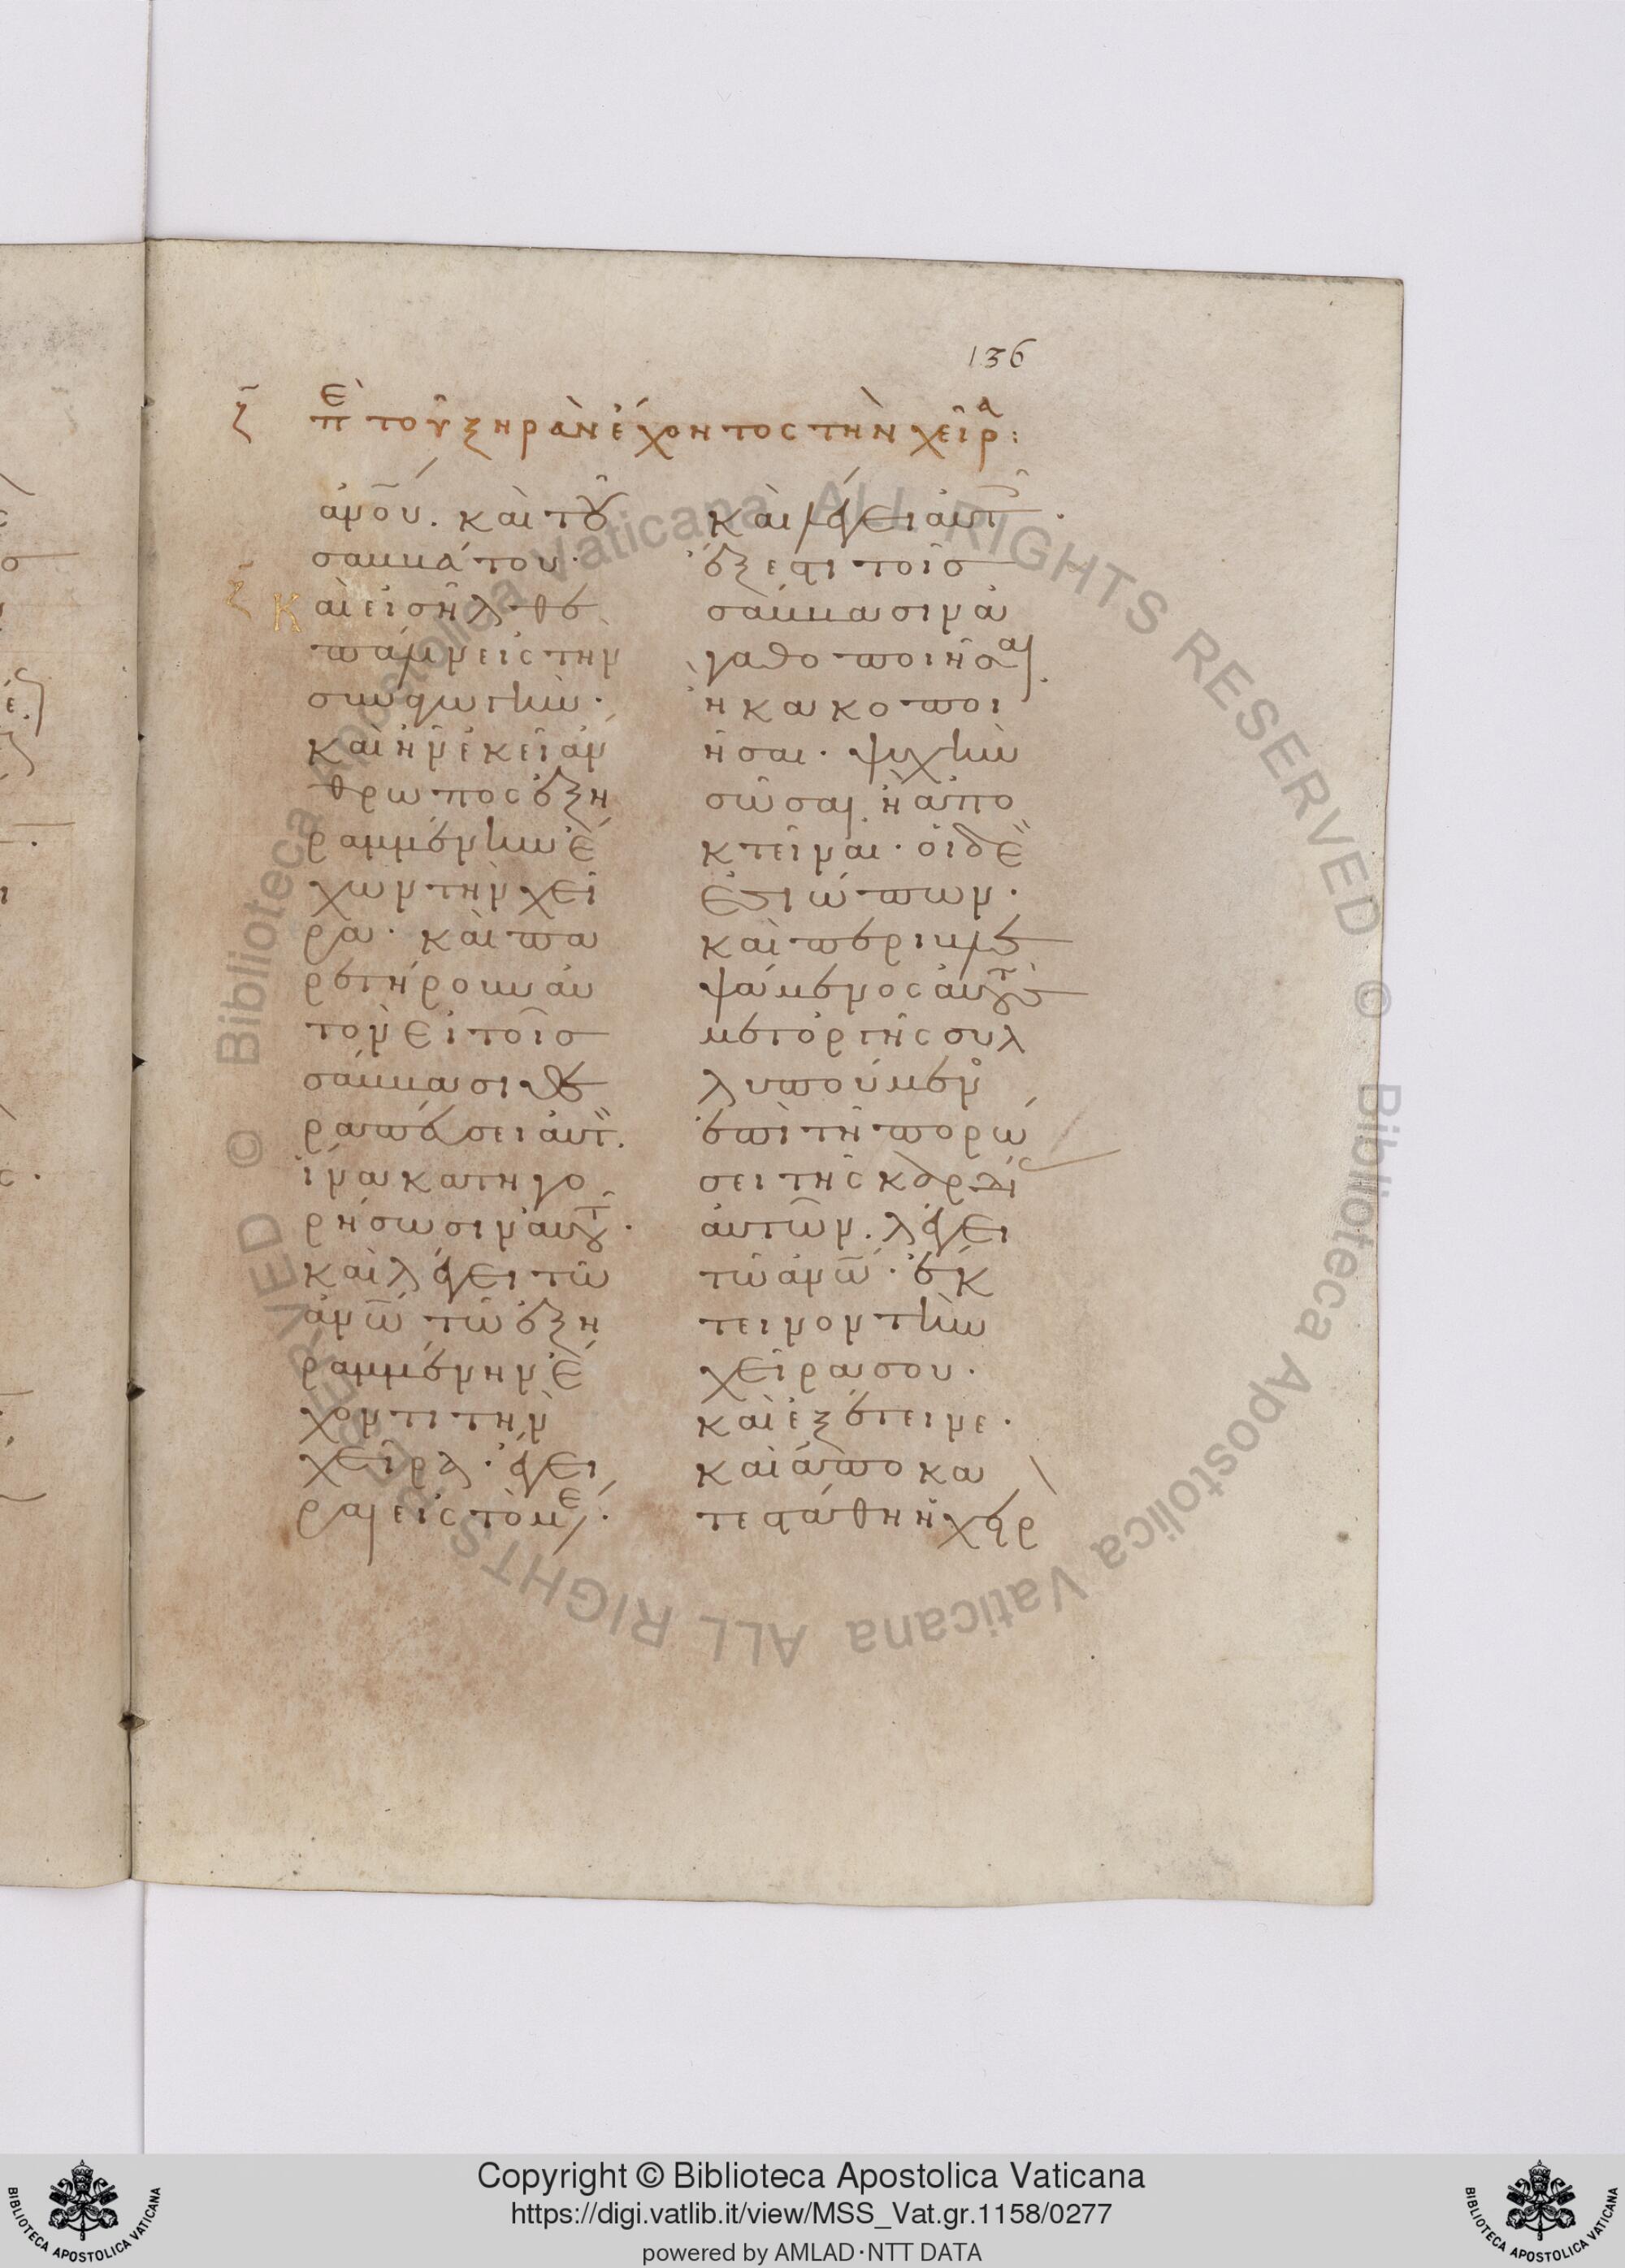 136
ζ̃ Πε τοῦ ξηρὰν ἔχοντος τὴν χεῖρα:
ἀνο̅υ. καὶ τοῦ
σαββάτου.
ζ̃ Καὶ εἰσῆλθε
πάλιν εἰς τὴν
συναγωγὴν.
καὶ ἦν ἐκεῖ ἄν
θρωπος ἐξη
ραμμένην ἔ
χων τὴν χεῖ
ρα. καὶ πα
ρετήρουν αὐ
τὸν εἰ τοῖς
σάββασι θε
ραπεύσει αὐτ̈.
ἵνα κατηγο
ρήσωσιν αὐτοῦ.
καὶ λέγει τῶ
ἀνω̅ τῶ ἐξη
ραμμένην ἔ
χοντι τὴν
χεῖρα. ἔγει
ραι εἰς τὸ με/.
καὶ λέγει αὐτοῖς.
ἔξεστι τοῖς
σάββασιν ἀ
γαθοποιῆσαι.
ἢ κακοποι
ῆσαι. ψυχὴν
σῶσαι. ἢ ἀπο
κτεῖναι. οἱ δὲ
ἐσιώπων.
καὶ περιβλε
ψάμενος αὐτοὺς
μετ ὀργῆς συλ
λυπούμενο
ἐπὶ τῆ πωρώ
σει τῆς καρδί
αὐτῶν. λέγει
τῶ ἀνω̅. ἔκ
τεινον τὴν
χεῖρα σου.
καὶ ἐξέτεινε.
καὶ ἀποκα
τεστάθη ἡ χεὶρ
Copyright © Biblioteca Apostolica Vaticana
https://digi.vatlib.it/view/MSS_Vat.gr.1158/0277
powered by AMLAD·NTT DATA
BIBLIOTECA APOSTOLICA VATICANA
BIBLIOTECA APOSTOLICA VATICANA
© Biblioteca Apostolica Vaticana ALL RIGHTS RESERVED © Biblioteca Apostolica Vaticana ALL RIGHTS RESERVED